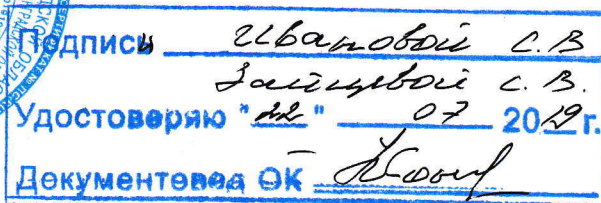 Подписи Ивановой С.В
Зайцевой С.В.
Удостоверяю "22" 07 2019 г.
Документовед ОК